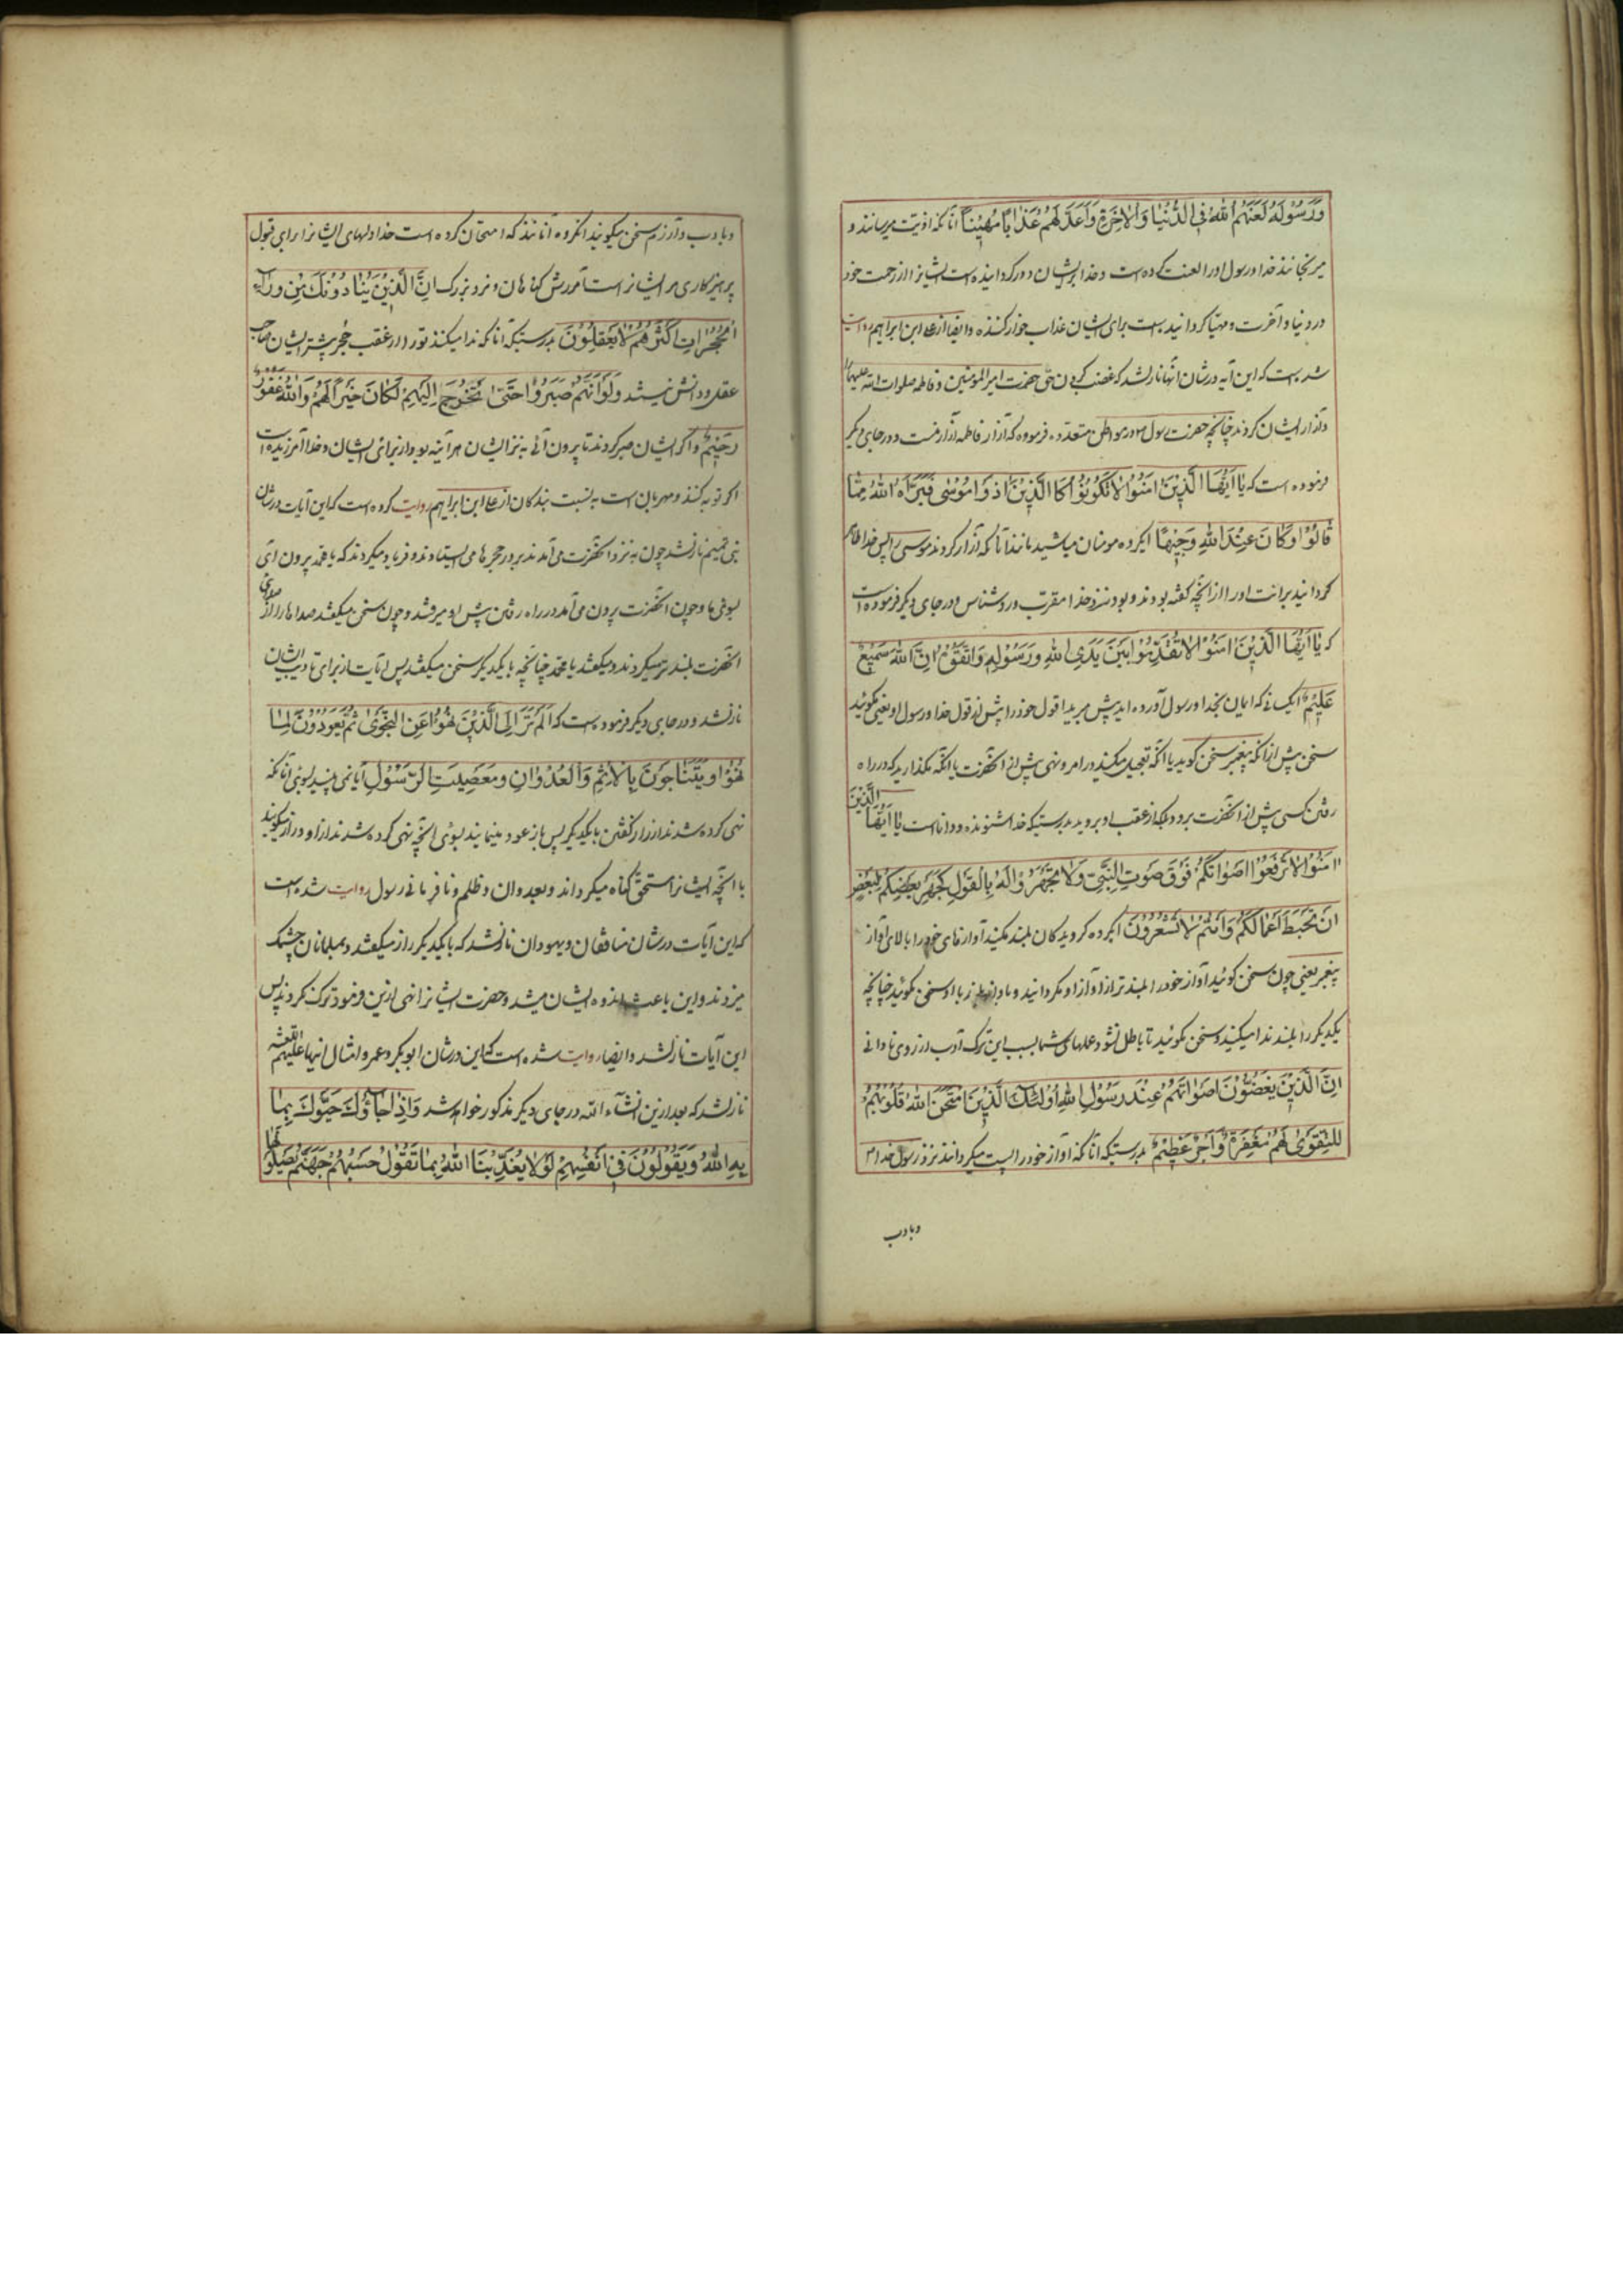 وَرَسُولَهُ لَعَنَهُمُ اللهُ فِی الدُّنْیَا وَالْاٰخِرَةِ وَاَعَدَّ لَهُمْ عَذَابًا مُهِیْنًا آنانکه اذیت میرسانند و
میرنجانند خدا و رسول او را لعنت کرده است و خدا بریشان دور کردانیده است ایشانرا از رحمت خود
در دنیا و آخرت و مهیا کردانیده است برای ایشان عذاب خوار کننده و ایضا از علی ابن ابراهیم روایت
شده است که این آیه در شان آنها نازلشد که غصب کردن حق حضرت امیرالمؤمنین و فاطمه صلوات الله علیهما
و آزار ایشان کردند چنانچه حضرت رسول م در مواطن متعدده فرموده که آزار فاطمه آزار منست و در جای دیکر
فرموده است که یٰا اَیُّهَا الَّذِیْنَ اٰمَنُوْا لَاتَکُوْنُوْا کَا الَّذِیْنَ اٰذَوْا مُوْسٰی فَبَرَّاَهُ اللهُ مِمَّا
قَالُوْا وَکَانَ عِنْدَ اللهِ وَجِیْهًا ایکروه مومنان میاشید مانند آنانکه آزار کردند موسی را پس خدا ظاهر
کردانید برائت او را از آنچه کفته بودند و بود نزد خدا مقرب و روشناس و در جای دیکر فرموده است
که یٰا اَیُّهَا الَّذِیْنَ اٰمَنُوْا لَاتُقَدِّمُوْا بَیْنَ یَدَیِ اللهِ وَرَسُوْلِهِ وَاتَّقُوْ اِنَّ اللهَ سَمِیْعٌ
عَلِیْمٌ ای کسانی که ایمان بخدا و رسول آورده اید پیش مبرید اقول خود را پیش از قول خدا و رسول او یعنی مکوئید
سخن پیش از آنکه پیغمبر سخن کوید یا آنکه تعجیل مکنید در امر و نهی پیش از آنحضرت یا آنکه مکذارید که در راه
رفتن کسی پیش از آنحضرت برود بلکه از عقب او بروید بدرستیکه خدا شنونده و داناست یٰا اَیُّهَا الَّذِیْنَ
اٰمَنُوْا لَاتَرْفَعُوْا اَصْوَاتَکُمْ فَوْقَ صَوْتِ النَّبِیِّ وَلَا تَجْهَرُوْا لَهُ بِالْقَوْلِ کَجَهْرِ بَعْضِکُمْ لِبَعْضٍ
اَنْ تَحْبَطَ اَعْمَالُکُمْ وَاَنْتُمْ لَاتَشْعُرُوْنَ ایکروه کرویدکان بلند مکنید آوازهای خود را بالای آواز
پیغمبر یعنی چون سخن کوئید آواز خود را بلند تر از آواز او مکردانید و بآواز بلند با او سخن مکوئید چنانچه
یکدیکر را بلند ندا میکنید و سخن مکوئید تا باطل نشود عملهای شما بسبب این ترک آدب از روی نادانی
اِنَّ الَّذِیْنَ یَغُضُّوْنَ اَصْوَاتَهُمْ عِنْدَ رَسُوْلِ اللهِ اُولٰئِکَ الَّذِیْنَ امْتَحَنَ اللهُ قُلُوْبَهُمْ
لِلتَّقْوٰی لَهُمْ مَغْفِرَةٌ وَاَجْرٌ عَظِیْمٌ بدرستیکه آنانکه آواز خود را پست میکردانند نزد رسول خدا م
وبادب
وبادب و آزرم سخن میکویند آنکروه آنانند که امتحان کرده است خدا دلهای ایشانرا برای قبول
پرهیزکاری مر ایشانراست آمرزش کناهان و مزد بزرک اِنَّ الَّذِیْنَ یُنَادُوْنَکَ مِنْ وَرَاءِ
الْحُجُرَاتِ اَکْثَرُهُمْ لَایَعْقِلُوْنَ بدرستیکه آنانکه ندا میکنند تو را از عقب حجر بیشتر ایشان صاحب
عقل و دانش نیستند وَلَوْ اَنَّهُمْ صَبَرُوْا حَتّٰی تَخْرُجَ اِلَیْهِمْ لَکَانَ خَیْرًا لَهُمْ وَاللهُ غَفُوْرٌ
رَحِیْمٌ و اکر ایشان صبر کردند تا بیرون آئی به نزد ایشان هر آینه بود از برای ایشان و خدا آمرزیده است
اکر توبه کنند و مهربان است به نسبت بندکان از علی ابن ابراهیم روایت کرده است که این آیات در شان
بنی تمیم نازلشد چون به نزد آنحضرت می آمدند بر در حجرها می ایستادند و فریاد میکردند که یا محمد بیرون آی
بسوی ما و چون آنحضرت بیرون می آمد در راه رفتن پیش او میرفتند و چون سخن میکفتند صداها را از صدای
آنحضرت بلند تر میکردند و میکفتند یا محمد چنانچه با یکدیکر سخن میکفتند پس آیات از برای تادیب ایشان
نازلشد و در جای دیکر فرموده است که اَلَمْ تَرَ اِلَی الَّذِیْنَ نُهُوْا عَنِ النَّجْوٰی ثُمَّ یَعُوْدُوْنَ لِمَا
نُهُوْا وَیَتَنَاجَوْنَ بِالْاِثْمِ وَالْعُدْوَانِ وَمَعْصِیَتِ الرَّسُوْلِ آیا نمی بینید بسوی آنانکه
نهی کرده شدند از راز کفتن با یکدیکر پس باز عود مینمایند بسوی آنچه نهی کرده شدند از او و راز میکویند
با آنچه ایشانرا مستحق کناه میکرداند و بعدوان و ظلم و نافرمانی رسول روایت شده است
که این آیات در شان منافقان و یهودان نازلشد که با یکدیکر راز میکفتند و بمسلمانان چشمک
میزدند و این باعث اندوه ایشان میشد و حضرت ایشانرا نهی ازین فرمود ترک نکردند پس
این آیات نازلشد و ایضا روایت شده است که این در شان ابوبکر و عمر و امثال اینها علیهم اللعنة
نازلشد که بعد ازین انشآء الله در جای دیکر مذکور خواهد شد وَاِذَا جَاؤُکَ حَیَّوْکَ بِمَا لَمْ یُحَیِّکَ
بِهِ اللهُ وَیَقُوْلُوْنَ فِیْ اَنْفُسِهِمْ لَوْلَا یُعَذِّبُنَا اللهُ بِمَا نَقُوْلُ حَسْبُهُمْ جَهَنَّمُ یَصْلَوْنَهَا